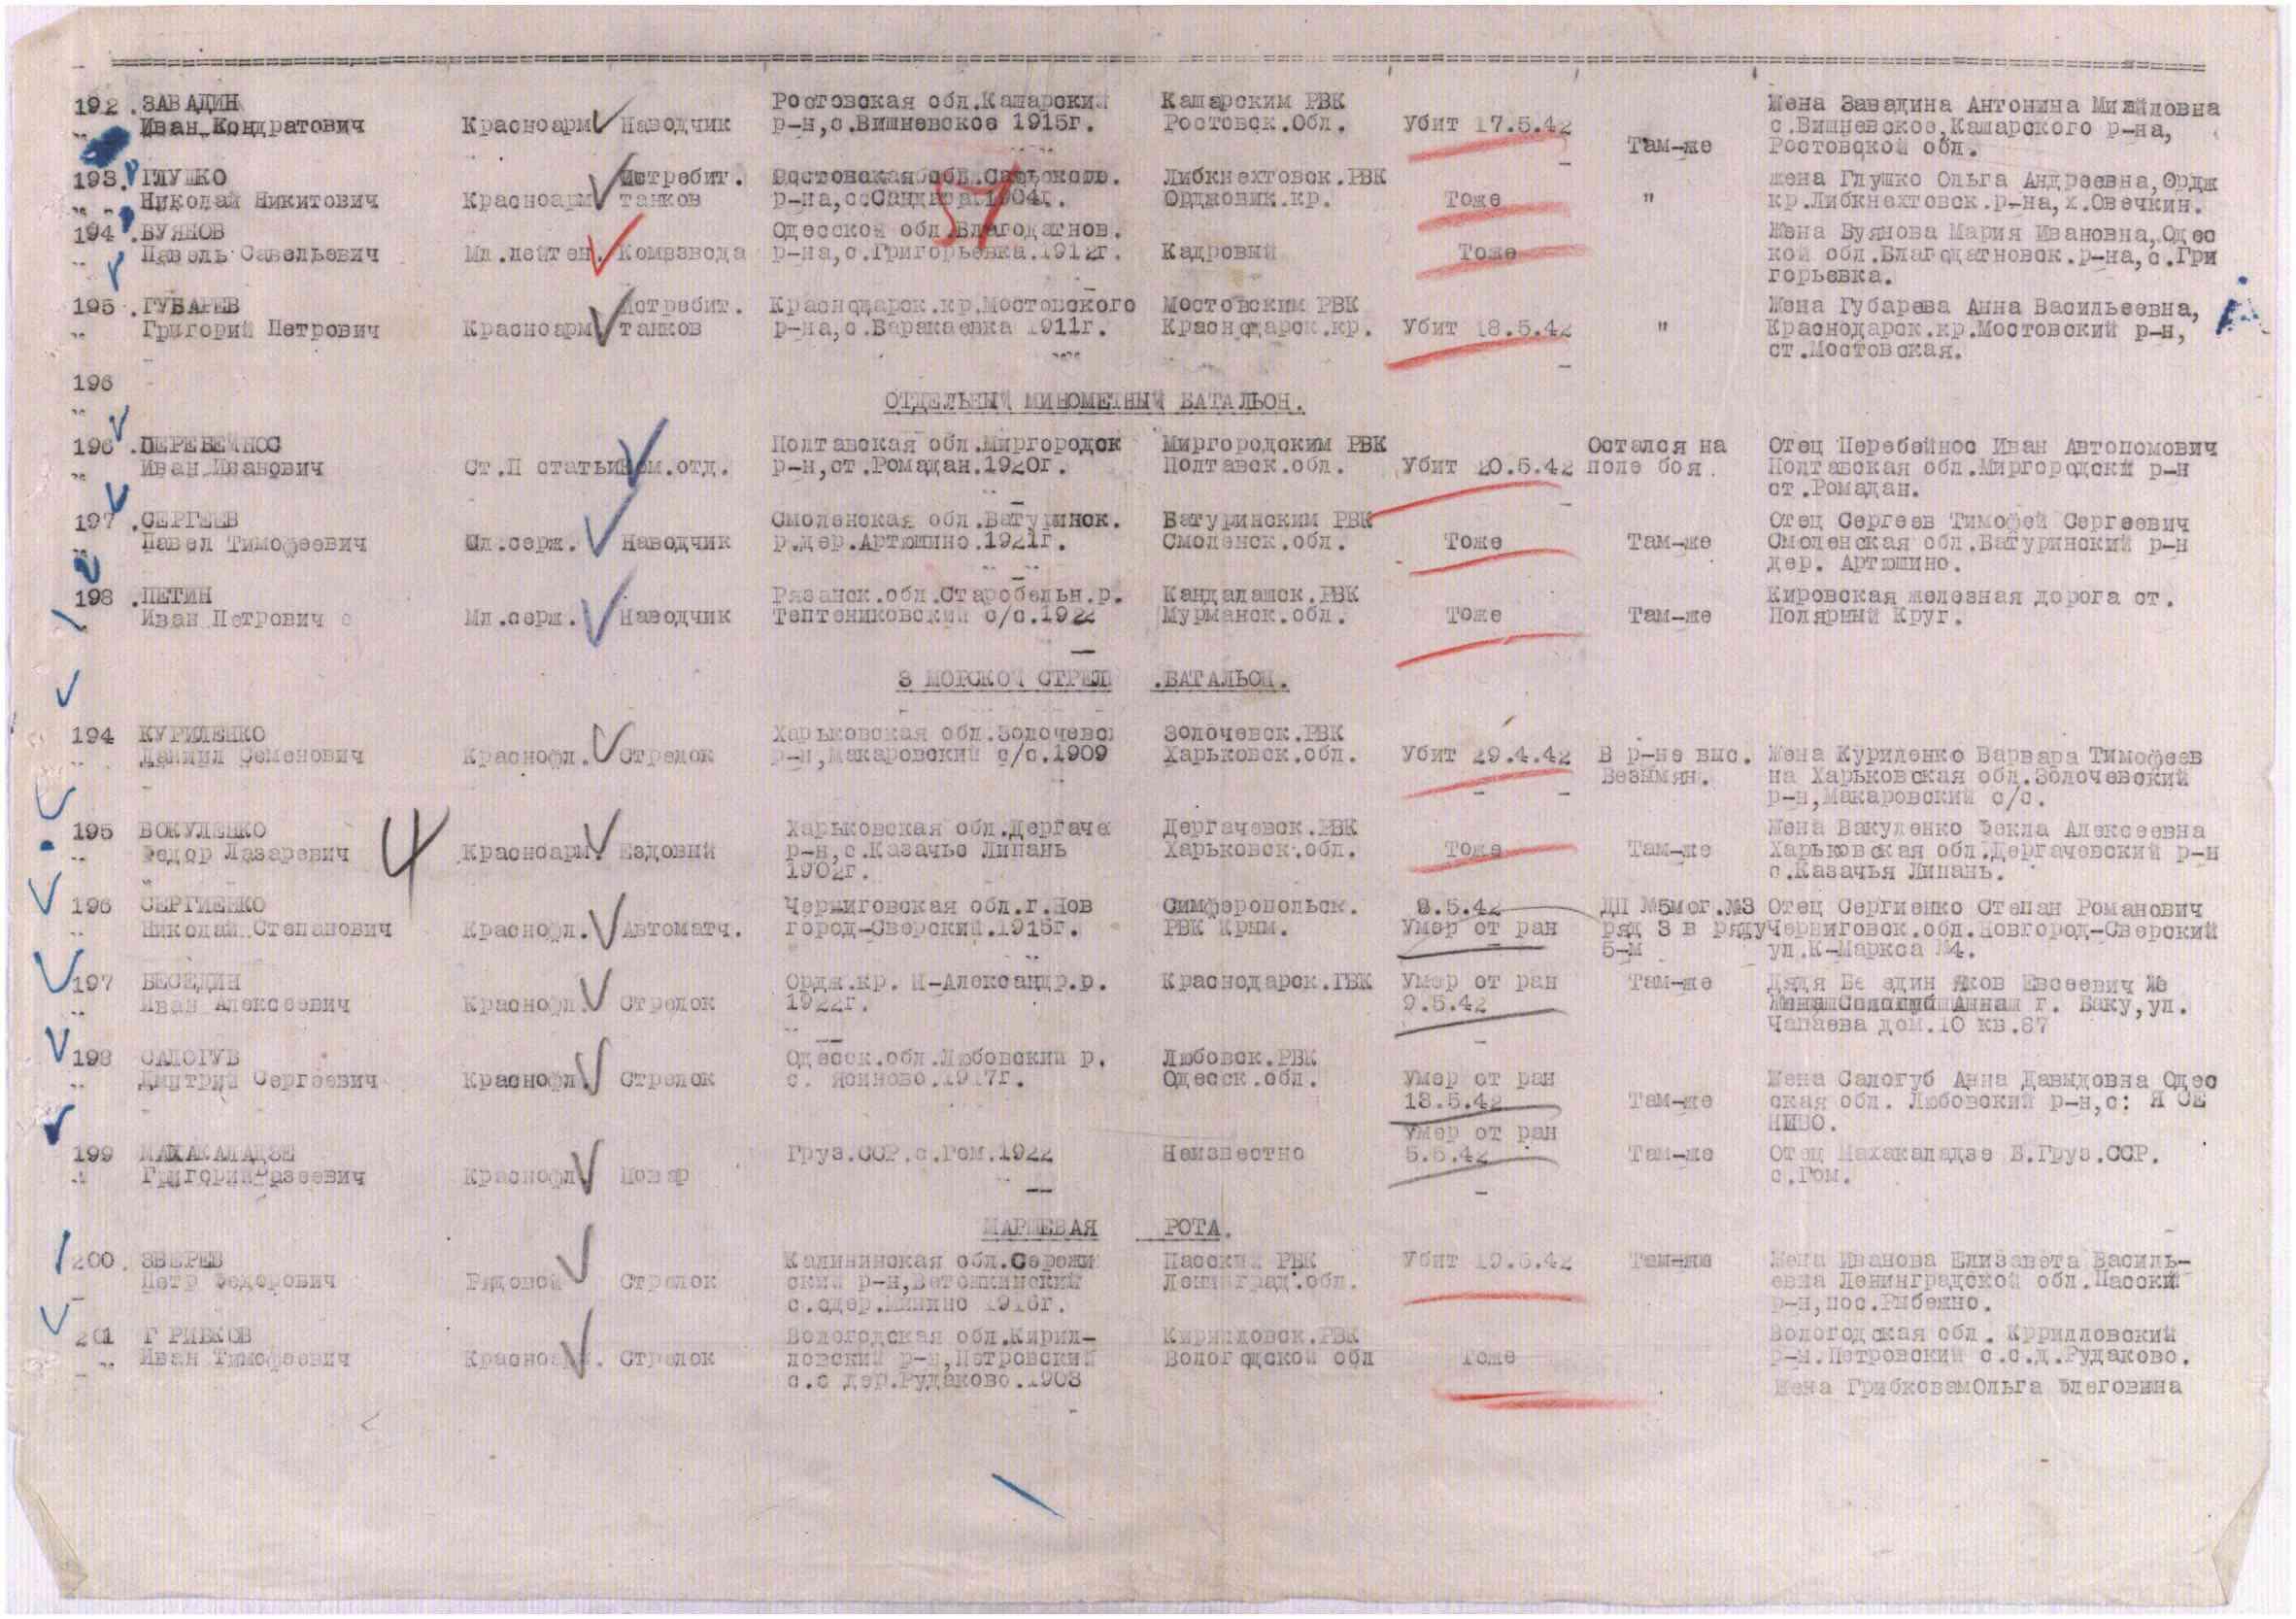 192. ЗАВАДИН
Иван Кондратович Красноарм. Наводчик Ростовская обл.Кашарский р-н,с.Вишневское 1915г. Кашарским РВК Ростовск.обл. Убит 17.5.42 Там-же Жена Завадина Антонина Михайловна
с.Вишневское,Кашарского р-на,
Ростовской обл.
193. ГЛУШКО
Николай Никитович Красноарм Истребит. танков Ростовская обл. р-на, 1904г. Либкнехтовск.РВК Орджоник.кр. Тоже " Жена Глушко Ольга Андреевна,Ордж
кр.Либкнехтовск.р-на,х.Овечкин.
194. БУЯНОВ
Павель Савельевич Мл.лейтен. Комвзвода Одесской обл.Благодатнов. р-на,с.Григорьевка.1912г. Кадровый Тоже Жена Буянова Мария Ивановна,Одес
кой обл.Благодатновск.р-на,с.Гри
горьевка.
195. ГУБАРЕВ
Григорий Петрович Красноарм Истребит. танков Краснодарск.кр.Мостовского р-на,с.Баракаевка 1911г. Мостовским РВК Краснодарск.кр. Убит 18.5.42 " Жена Губарева Анна Васильевна,
Краснодарск.кр.Мостовский р-н,
ст.Мостовская.
196
ОТДЕЛЬНЫЙ МИНОМЕТНЫЙ БАТАЛЬОН.
196. ПЕРЕБЕЙНОС
Иван Иванович Ст.П статьи Ком.отд. Полтавская обл.Миргородск р-н,ст.Ромадан.1920г. Миргородским РВК Полтавск.обл. Убит 20.5.42 Остался на поле боя. Отец Перебейнос Иван Автопомович
Полтавская обл.Миргородски р-н
ст.Ромадан.
197. СЕРГЕЕВ
Павел Тимофеевич Мл.серж. Наводчик Смоленская обл.Батуринск. р.дер.Артюшино.1921г. Батуринским РВК Смоленск.обл. Тоже Там-же Отец Сергеев Тимофей Сергеевич
Смоленская обл.Батуринский р-н
дер. Артюшино.
198. ПЕТИН
Иван Петрович Мл.серж. Наводчик Рязанск.обл.Старобельн.р. Тептениковский с/с.1922 Кандалашск.РВК Мурманск.обл. Тоже Там-же Кировская железная дорога ст.
Полярный Круг.
3 МОРСКОЙ СТРЕЛ .БАТАЛЬОН.
194 КУРИЛЕНКО
Даниил Семенович Краснофл. Стрелок Харьковская обл.Золочевс р-н,Макаровский с/с.1909 Золочевск.РВК Харьковск.обл. Убит 29.4.42 В р-не выс. Безымян. Жена Куриленко Варвара Тимофеев
на Харьковская обл.Золочевский
р-н,Макаровский с/с.
4
195 ВОКУЛЕНКО
Федор Лазаревич Красноарм. Ездовый Харьковская обл.Дергаче р-н,с.Казачье Липань 1902г. Дергачевск.РВК Харьковск.обл. Тоже Там-же Жена Вакуленко Фекла Алексеевна
Харьковская обл.Дергачевский р-н
с.Казачья Липань.
196 СЕРГИЕНКО
Николай Степанович Краснофл. Автоматч. Черниговская обл.г.Нов город-Сверский.1915г. Симферопольск. РВК Крым. 9.5.42 Умер от ран ДП №5мог.№3 ряд 3 в ряду 5-й Отец Сергиенко Степан Романович
Черниговск.обл.Новгород-Сверский
ул.К-Маркса №4.
197 БЕСЕДИН
Иван Алексеевич Краснофл. Стрелок Ордж.кр. И-Александр.р. 1922г. Краснодарск.ГВК Умер от ран 9.5.42 Там-же Дядя Бе един Яков Евсеевич
г. Баку,ул.
Чапаева дом.10 кв.67
198 САЛОГУБ
Дмитрий Сергеевич Краснофл. Стрелок Одесск.обл.Любовский р. с. Ясиново.1917г. Любовск.РВК Одесск.обл. Умер от ран 13.5.42 Там-же Жена Салогуб Анна Давыдовна Одес
ская обл. Любовский р-н,с: Я СЕ
НИВО.
199 МАХАКАЛАДЗЕ
Григорий Разеевич Краснофл Повар Груз.ССР.с.Гом.1922 Неизвестно Умер от ран 5.5.42 Там-же Отец Махакаладзе В.Груз.ССР.
с.Гом.
МАРШЕВАЯ РОТА.
200. ЗВЕРЕВ
Петр Федорович Рядовой Стрелок Калининская обл.Сережи ский р-н,Ветошкинский 1916г. Пасский РВК Ленинград.обл. Убит 19.5.42 Там-же Жена Иванова Елизавета Василь-
евна Ленинградской обл.Пасски
р-н,пос.Рыбежно.
201 ГРИБКОВ
Иван Тимофеевич Красноарм. Стрелок Вологодская обл.Кирил- ловский р-н,Петровский с.с дер.Рудаково.1903 Кирилловск.РВК Вологодской обл Тоже Вологодская обл. Крриловский
р-н.Петровский с.с.д.Рудаково.
Жена ГрибковамОльга Олеговина